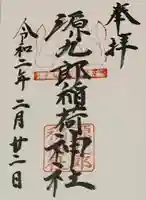 奉拝
源九郎稲荷神社
令和二年二月廿二日